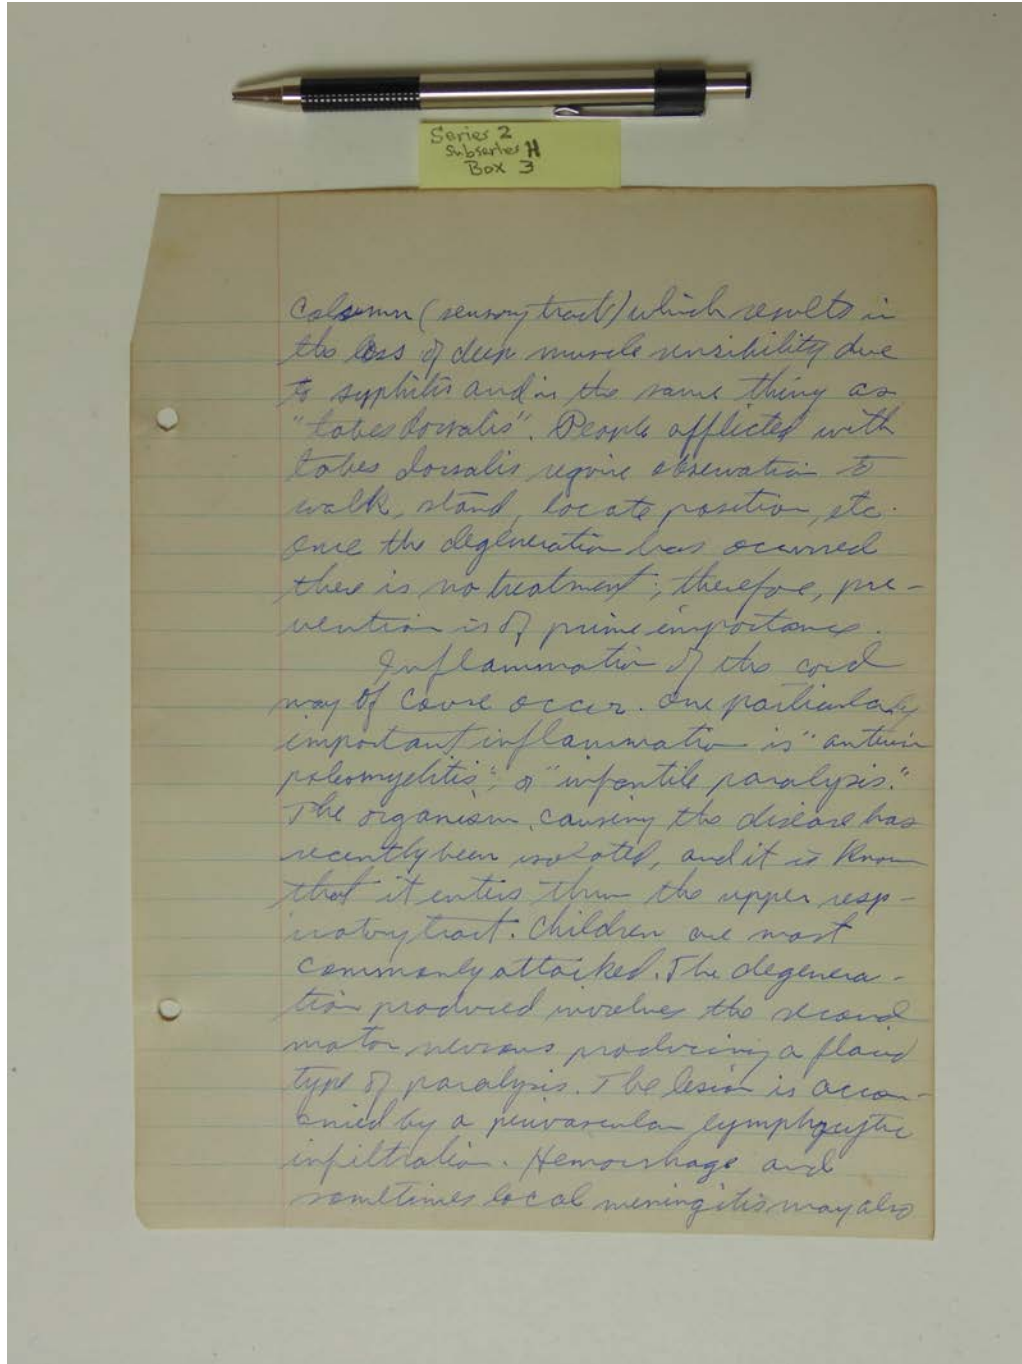 Series 2
Subseries H
Box 3
Column (sensory tract) which results in
the loss of deep muscle sensibility due
to syphilis and is the same thing as
"tabes dorsalis". People afflicted with
tabes dorsalis require observation to
walk, stand, locate position, etc.
Once the degeneration has occurred
there is no treatment; therefore, pre-
vention is of prime importance.
Inflammation of the cord
may of course occur. One particularly
important inflammation is "anterior
poleomyelitis", or "infantile paralysis."
The organism causing the disease has
recently been isolated, and it is known
that it enters thru the upper resp-
iratory tract. Children are most
commonly attacked. The degenera-
tion produced involves the second
motor neurons producing a flacid
type of paralysis. The lesion is accom-
panied by a perivascular lymphocytic
infiltration. Hemorrhage and
sometimes local meningitis may also